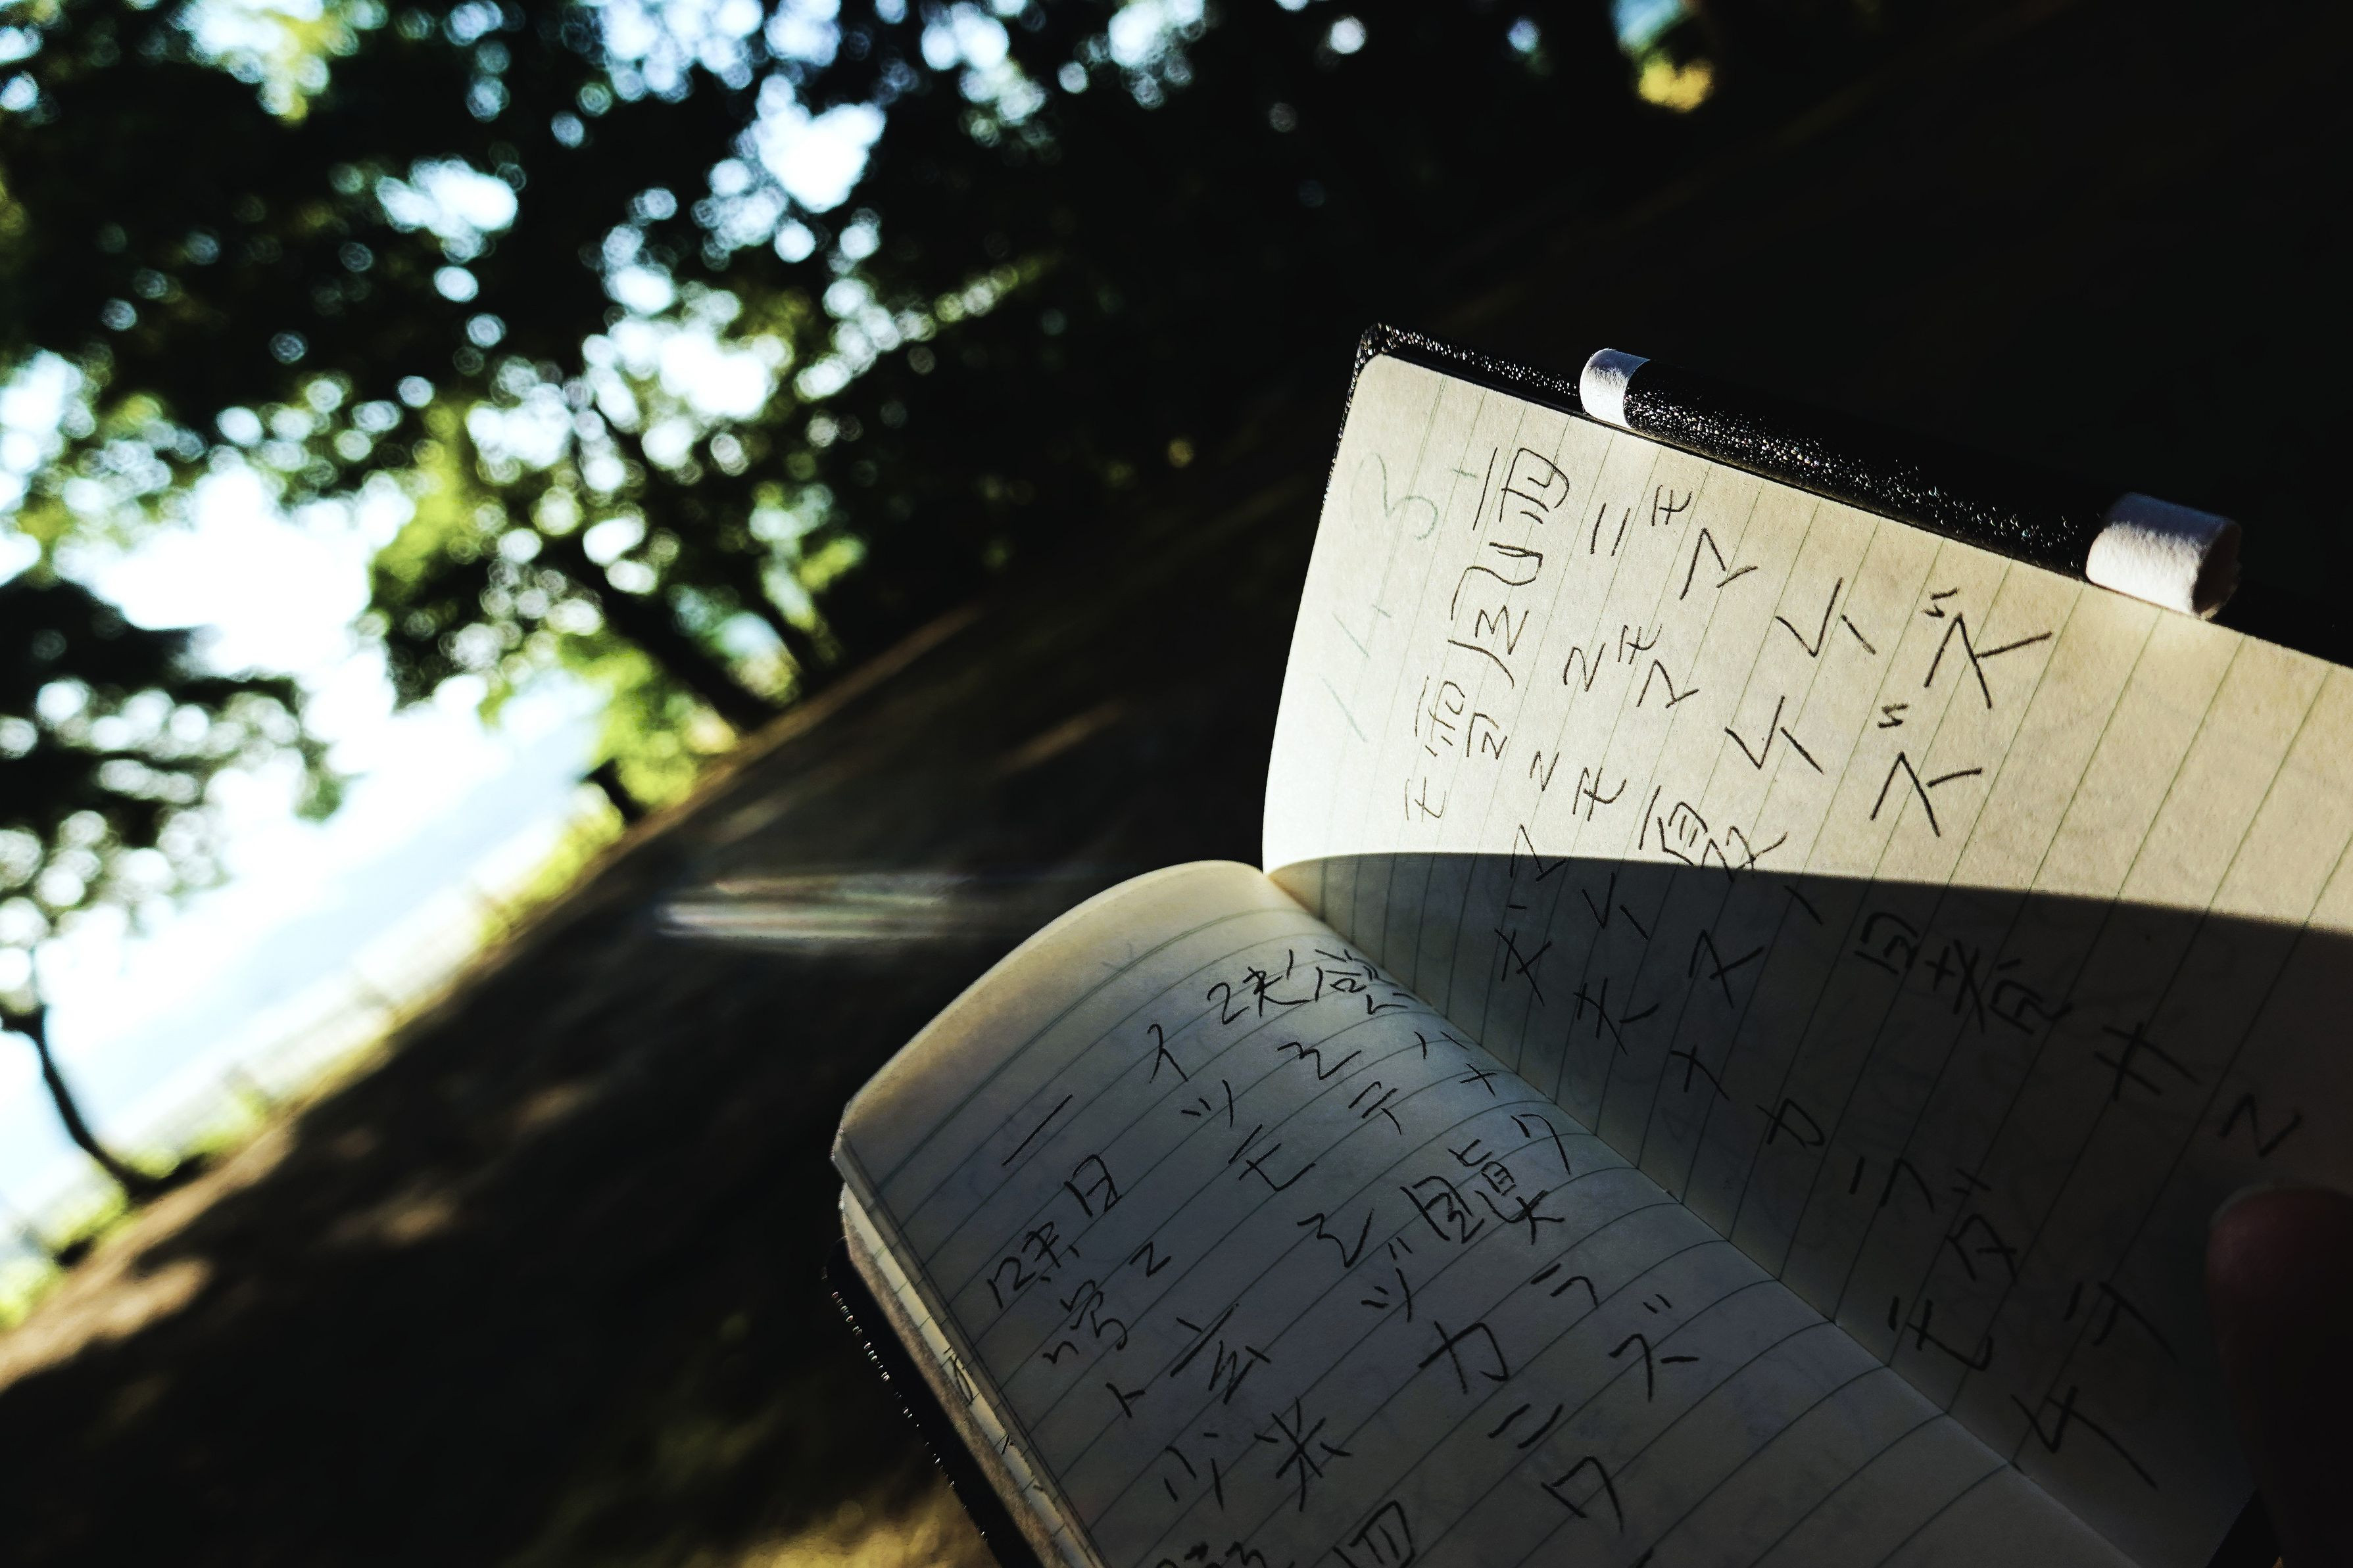 11.3.
雨ニモマケズ
風ニモマケズ
雪ニモ夏ノ暑サニ
モマケヌ
丈夫ナカラダヲ
モチ
慾ハナク
決シテ瞋ラズ
イツモシヅカニワ
一日ニ玄米四
味噌ト少